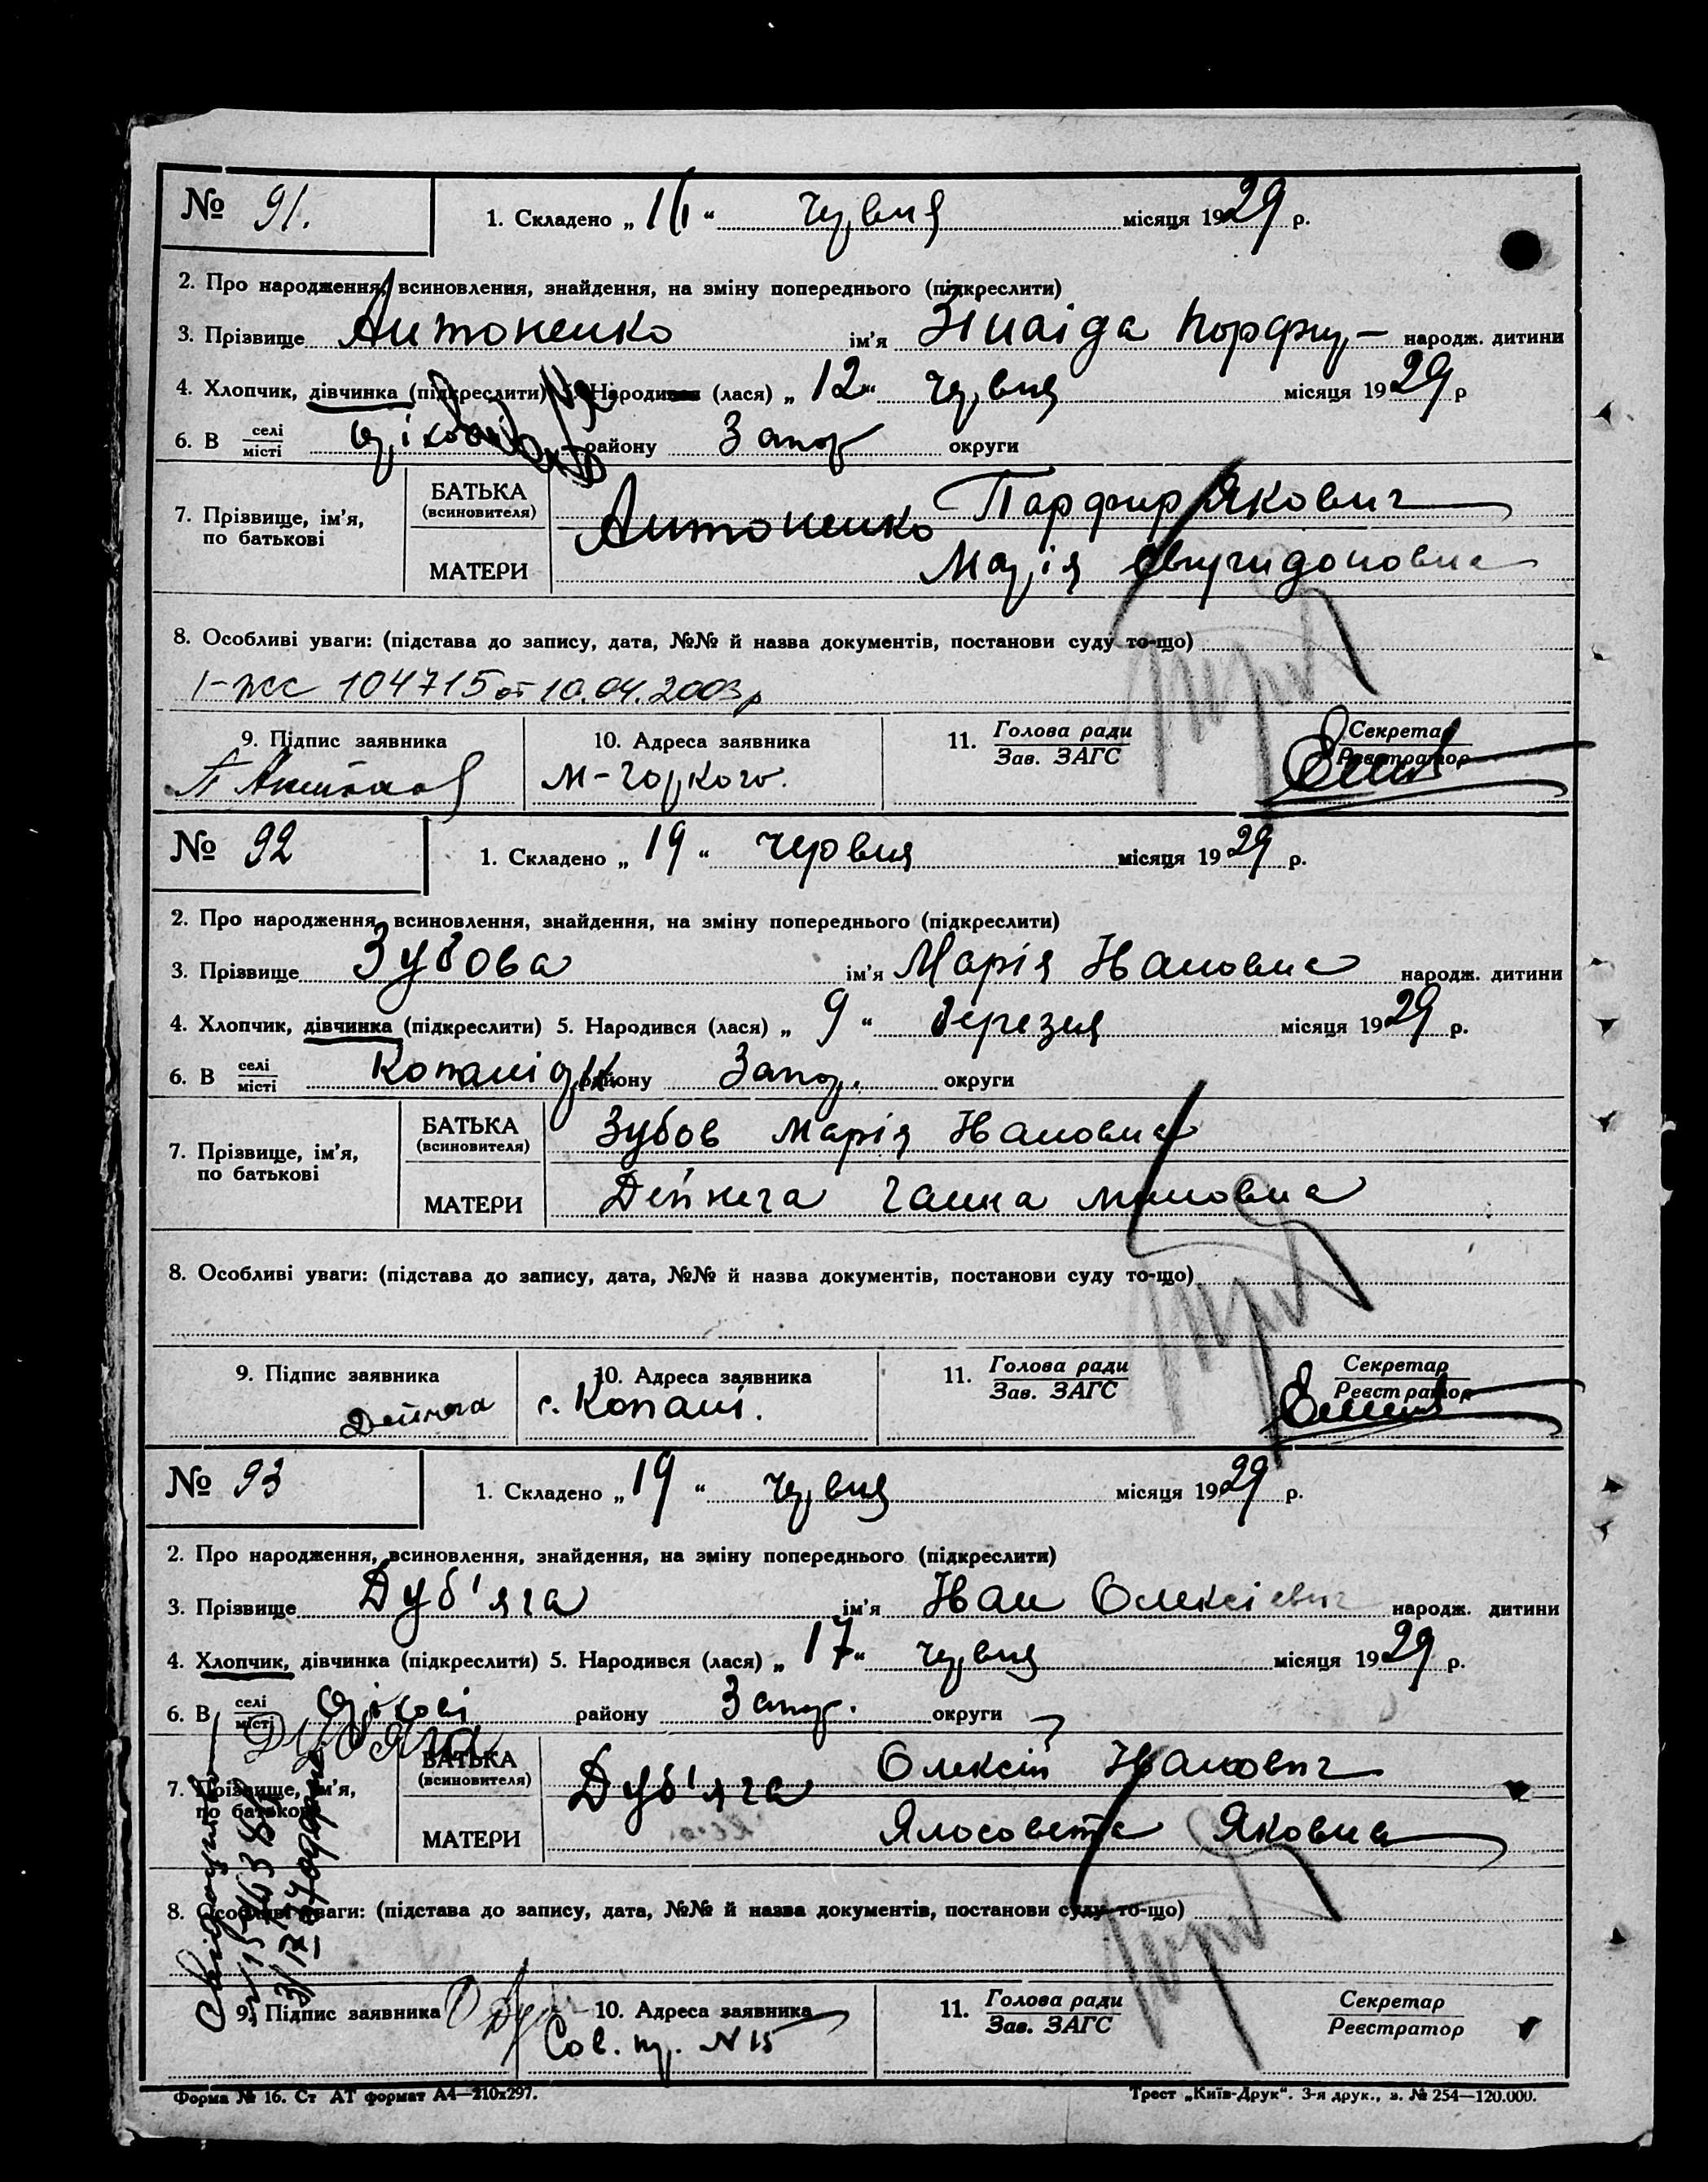 № 91. 1. Складено „ “ червня місяця 1929 р.
2. Про народження, всиновлення, знайдення, на зміну попереднього (підкреслити)
3. Прізвище Антоненко ім'я Зінаіда Порфир– народж. дитини
4. Хлопчик, дівчинка (підкреслити) 5. Народився (лася) „ 12 “ червня місяця 1929 р
6. В селі/місті Оріхові району Запор округи
7. Прізвище, ім'я, по батькові
БАТЬКА (всиновителя) Антоненко Парфир Якович
МАТЕРИ Марія
8. Особливі уваги: (підстава до запису, дата, №№ й назва документів, постанови суду то-що)
I-жс 104715 от 10.04.2003р
9. Підпис заявника 10. Адреса заявника 11. Голова ради/Зав. ЗАГС Секретар/Реєстратор
м-Горкого.
№ 92 1. Складено „ 19 “ червня місяця 1929 р.
2. Про народження, всиновлення, знайдення, на зміну попереднього (підкреслити)
3. Прізвище Зубова ім'я Марія Івановна народж. дитини
4. Хлопчик, дівчинка (підкреслити) 5. Народився (лася) „ 9 “ березня місяця 1929 р.
6. В селі/місті Копані району Запор. округи
7. Прізвище, ім'я, по батькові
БАТЬКА (всиновителя) Зубов Марія Івановна
МАТЕРИ Дейнега Ганна
8. Особливі уваги: (підстава до запису, дата, №№ й назва документів, постанови суду то-що)
9. Підпис заявника 10. Адреса заявника 11. Голова ради/Зав. ЗАГС Секретар/Реєстратор
Дейнега с. Копані.
№ 93 1. Складено „ 19 “ червня місяця 1929 р.
2. Про народження, всиновлення, знайдення, на зміну попереднього (підкреслити)
3. Прізвище Дуб'яга ім'я Іван Олексієвич народж. дитини
4. Хлопчик, дівчинка (підкреслити) 5. Народився (лася) „ 17 “ червня місяця 1929 р.
6. В селі/місті Оріхові району Запор. округи
Дубяга
7. Прізвище, ім'я, по батькові
БАТЬКА (всиновителя) Дуб'яга Олексій Іванович
МАТЕРИ Ялосовета Яковна
8. Особливі уваги: (підстава до запису, дата, №№ й назва документів, постанови суду то-що)
9. Підпис заявника 10. Адреса заявника 11. Голова ради/Зав. ЗАГС Секретар/Реєстратор
Сов. пр. N 15
Форма № 16. Ст АТ формат А4—210х297. Трест „Київ-Друк“. 3-я друк., з. № 254—120.000.